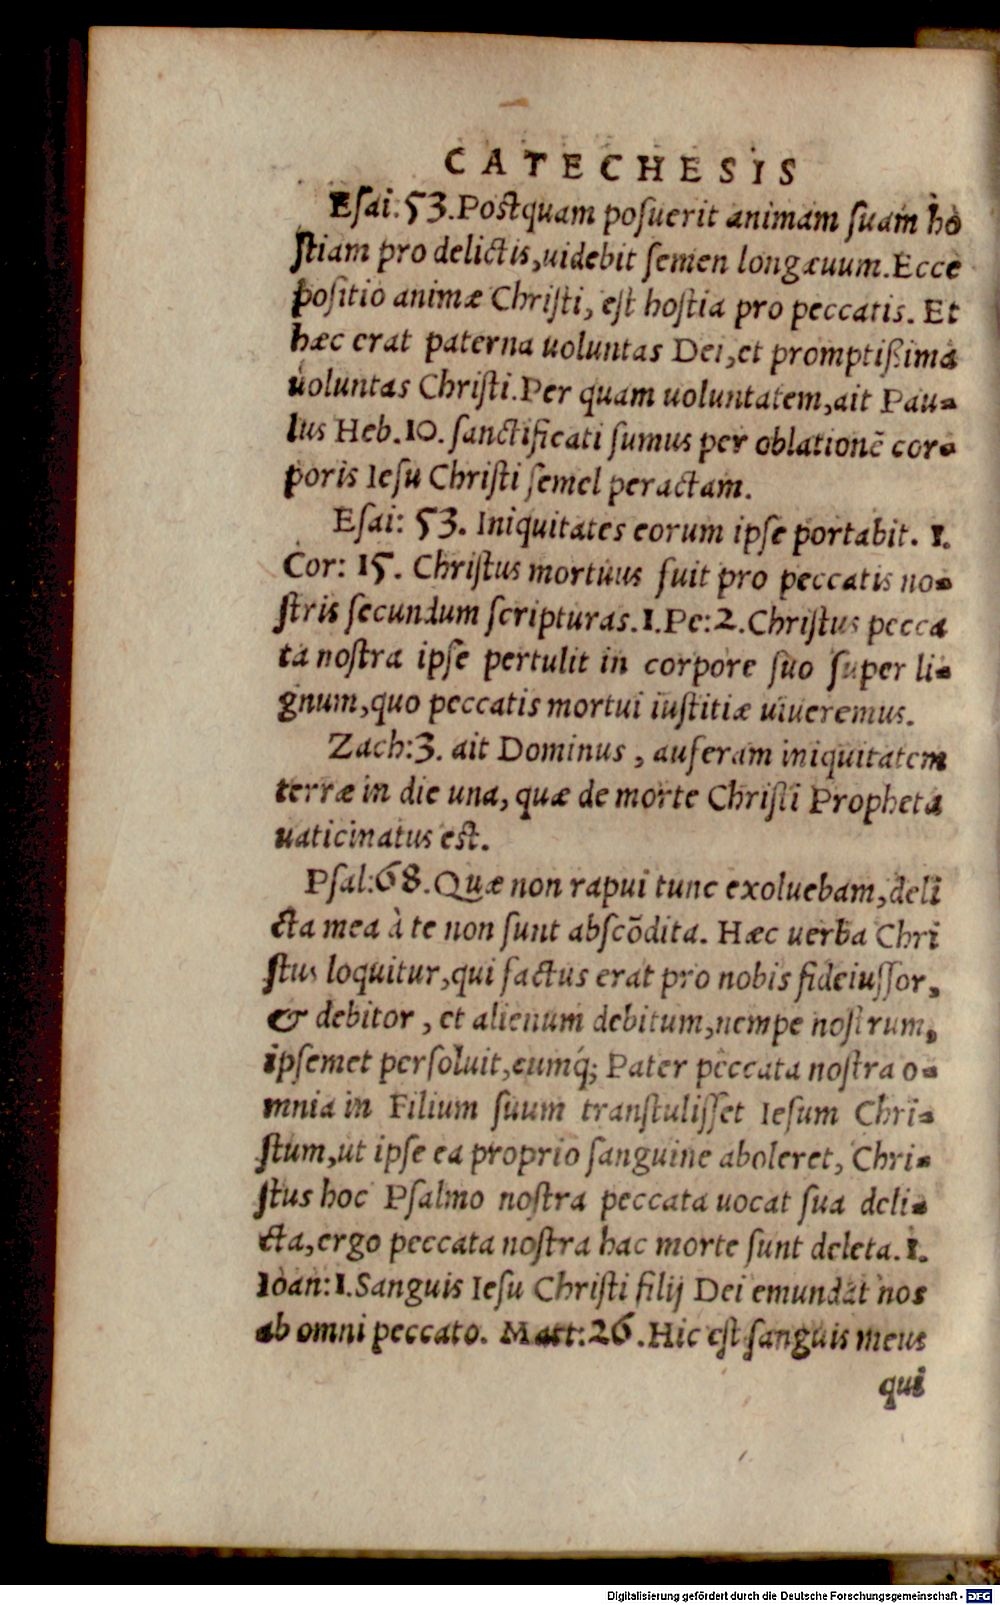 CATECHESIS
Esai: 53. Postquam posuerit animam suam ho
stiam pro delictis, uidebit semen longæuum. Ecce
positio animæ Christi, est hostia pro peccatis. Et
hæc erat paterna uoluntas Dei, et promptißima
uoluntas Christi. Per quam uoluntatem, ait Pau-
lus Heb. 10. sanctificati sumus per oblationē cor-
poris Iesu Christi semel peractam.
Esai: 53. Iniquitates eorum ipse portabit. 1.
Cor: 15. Christus mortuus fuit pro peccatis no-
stris secundum scripturas. 1. Pe: 2. Christus pecca
ta nostra ipse pertulit in corpore suo super li-
gnum, quo peccatis mortui iustitiæ uiueremus.
Zach: 3. ait Dominus, auferam iniquitatem
terræ in die una, quæ de morte Christi Propheta
uaticinatus est.
Psal: 68. Quæ non rapui tunc exoluebam, deli
cta mea à te non sunt abscōdita. Hæc uerba Chri
stus loquitur, qui factus erat pro nobis fideiussor,
& debitor, et alienum debitum, nempe nostrum,
ipsemet persoluit, cumq́; Pater peccata nostra o-
mnia in Filium suum transtulisset Iesum Chri-
stum, ut ipse ea proprio sanguine aboleret, Chri-
stus hoc Psalmo nostra peccata uocat sua deli-
cta, ergo peccata nostra hac morte sunt deleta. 1.
Ioan: 1. Sanguis Iesu Christi filij Dei emundat nos
ab omni peccato. Matt: 26. Hic est sanguis meus
qui
Digitalisierung gefördert durch die Deutsche Forschungsgemeinschaft - DFG